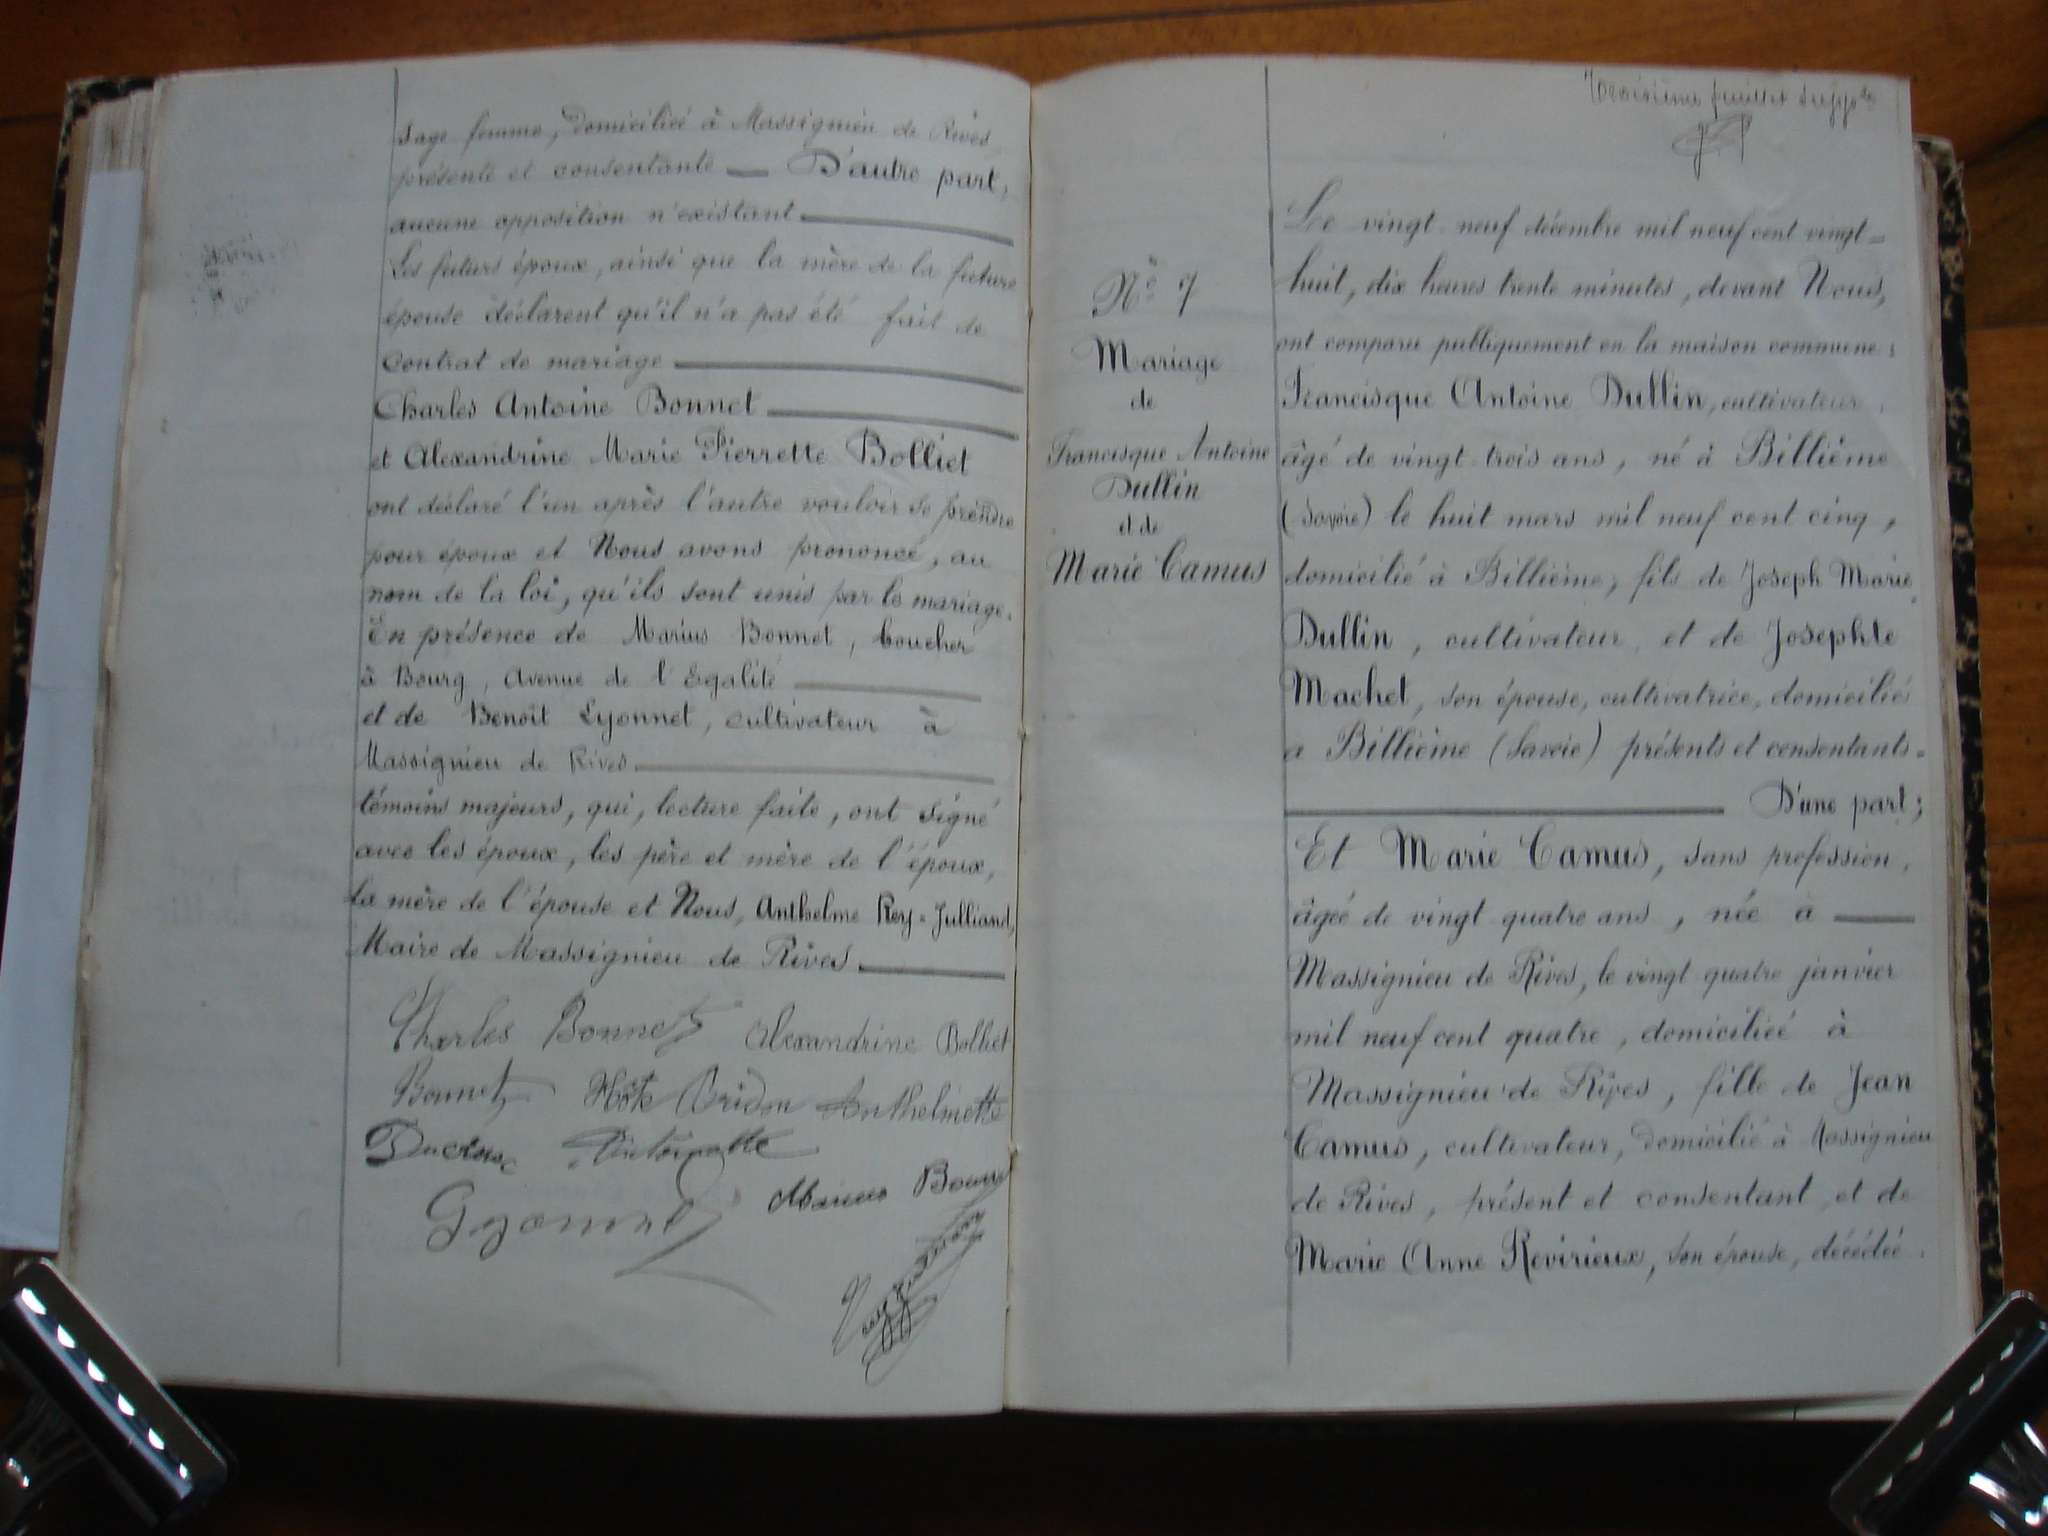 sage femme, domiciliée à Massignieu de Rives
présente et consentante — D'autre part,
aucune opposition n'existant
Les futurs époux, ainsi que la mère de la future
épouse déclarent qu'il n'a pas été fait de
contrat de mariage
Charles Antoine Bonnet
et Alexandrine Marie Pierrette Bolliet
ont déclaré l'un après l'autre vouloir se prendre
pour époux et Nous avons prononcé, au
nom de la loi, qu'ils sont unis par le mariage.
En présence de Marius Bonnet, boucher
à Bourg, Avenue de l'Egalité
et de Benoît Lyonnet, cultivateur à
Massignieu de Rives
témoins majeurs, qui, lecture faite, ont signé
avec les époux, les père et mère de l'époux,
la mère de l'épouse et Nous, Anthelme Rey-Julliand,
Maire de Massignieu de Rives
Charles Bonnet Alexandrine Bolliet
Bonnet Anthelmette
Ducroux Antoinette
Lyonnet Marius Bonnet
Troisième feuillet supp.
N° 7
Mariage
de
Francisque Antoine
Dullin
et de
Marie Camus
Le vingt-neuf décembre mil neuf cent vingt-
huit, dix heures trente minutes, devant Nous,
ont comparu publiquement en la maison commune:
Francisque Antoine Dullin, cultivateur,
âgé de vingt-trois ans, né à Billième
(Savoie) le huit mars mil neuf cent cinq,
domicilié à Billième, fils de Joseph Marie
Dullin, cultivateur, et de Josephte
Machet, son épouse, cultivatrice, domiciliés
à Billième (Savoie) présents et consentants-
D'une part;
Et Marie Camus, sans profession,
âgée de vingt quatre ans, née à
Massignieu de Rives, le vingt quatre janvier
mil neuf cent quatre, domiciliée à
Massignieu de Rives, fille de Jean
Camus, cultivateur, domicilié à Massignieu
de Rives, présent et consentant, et de
Marie Anne Revirieux, son épouse, décédée.